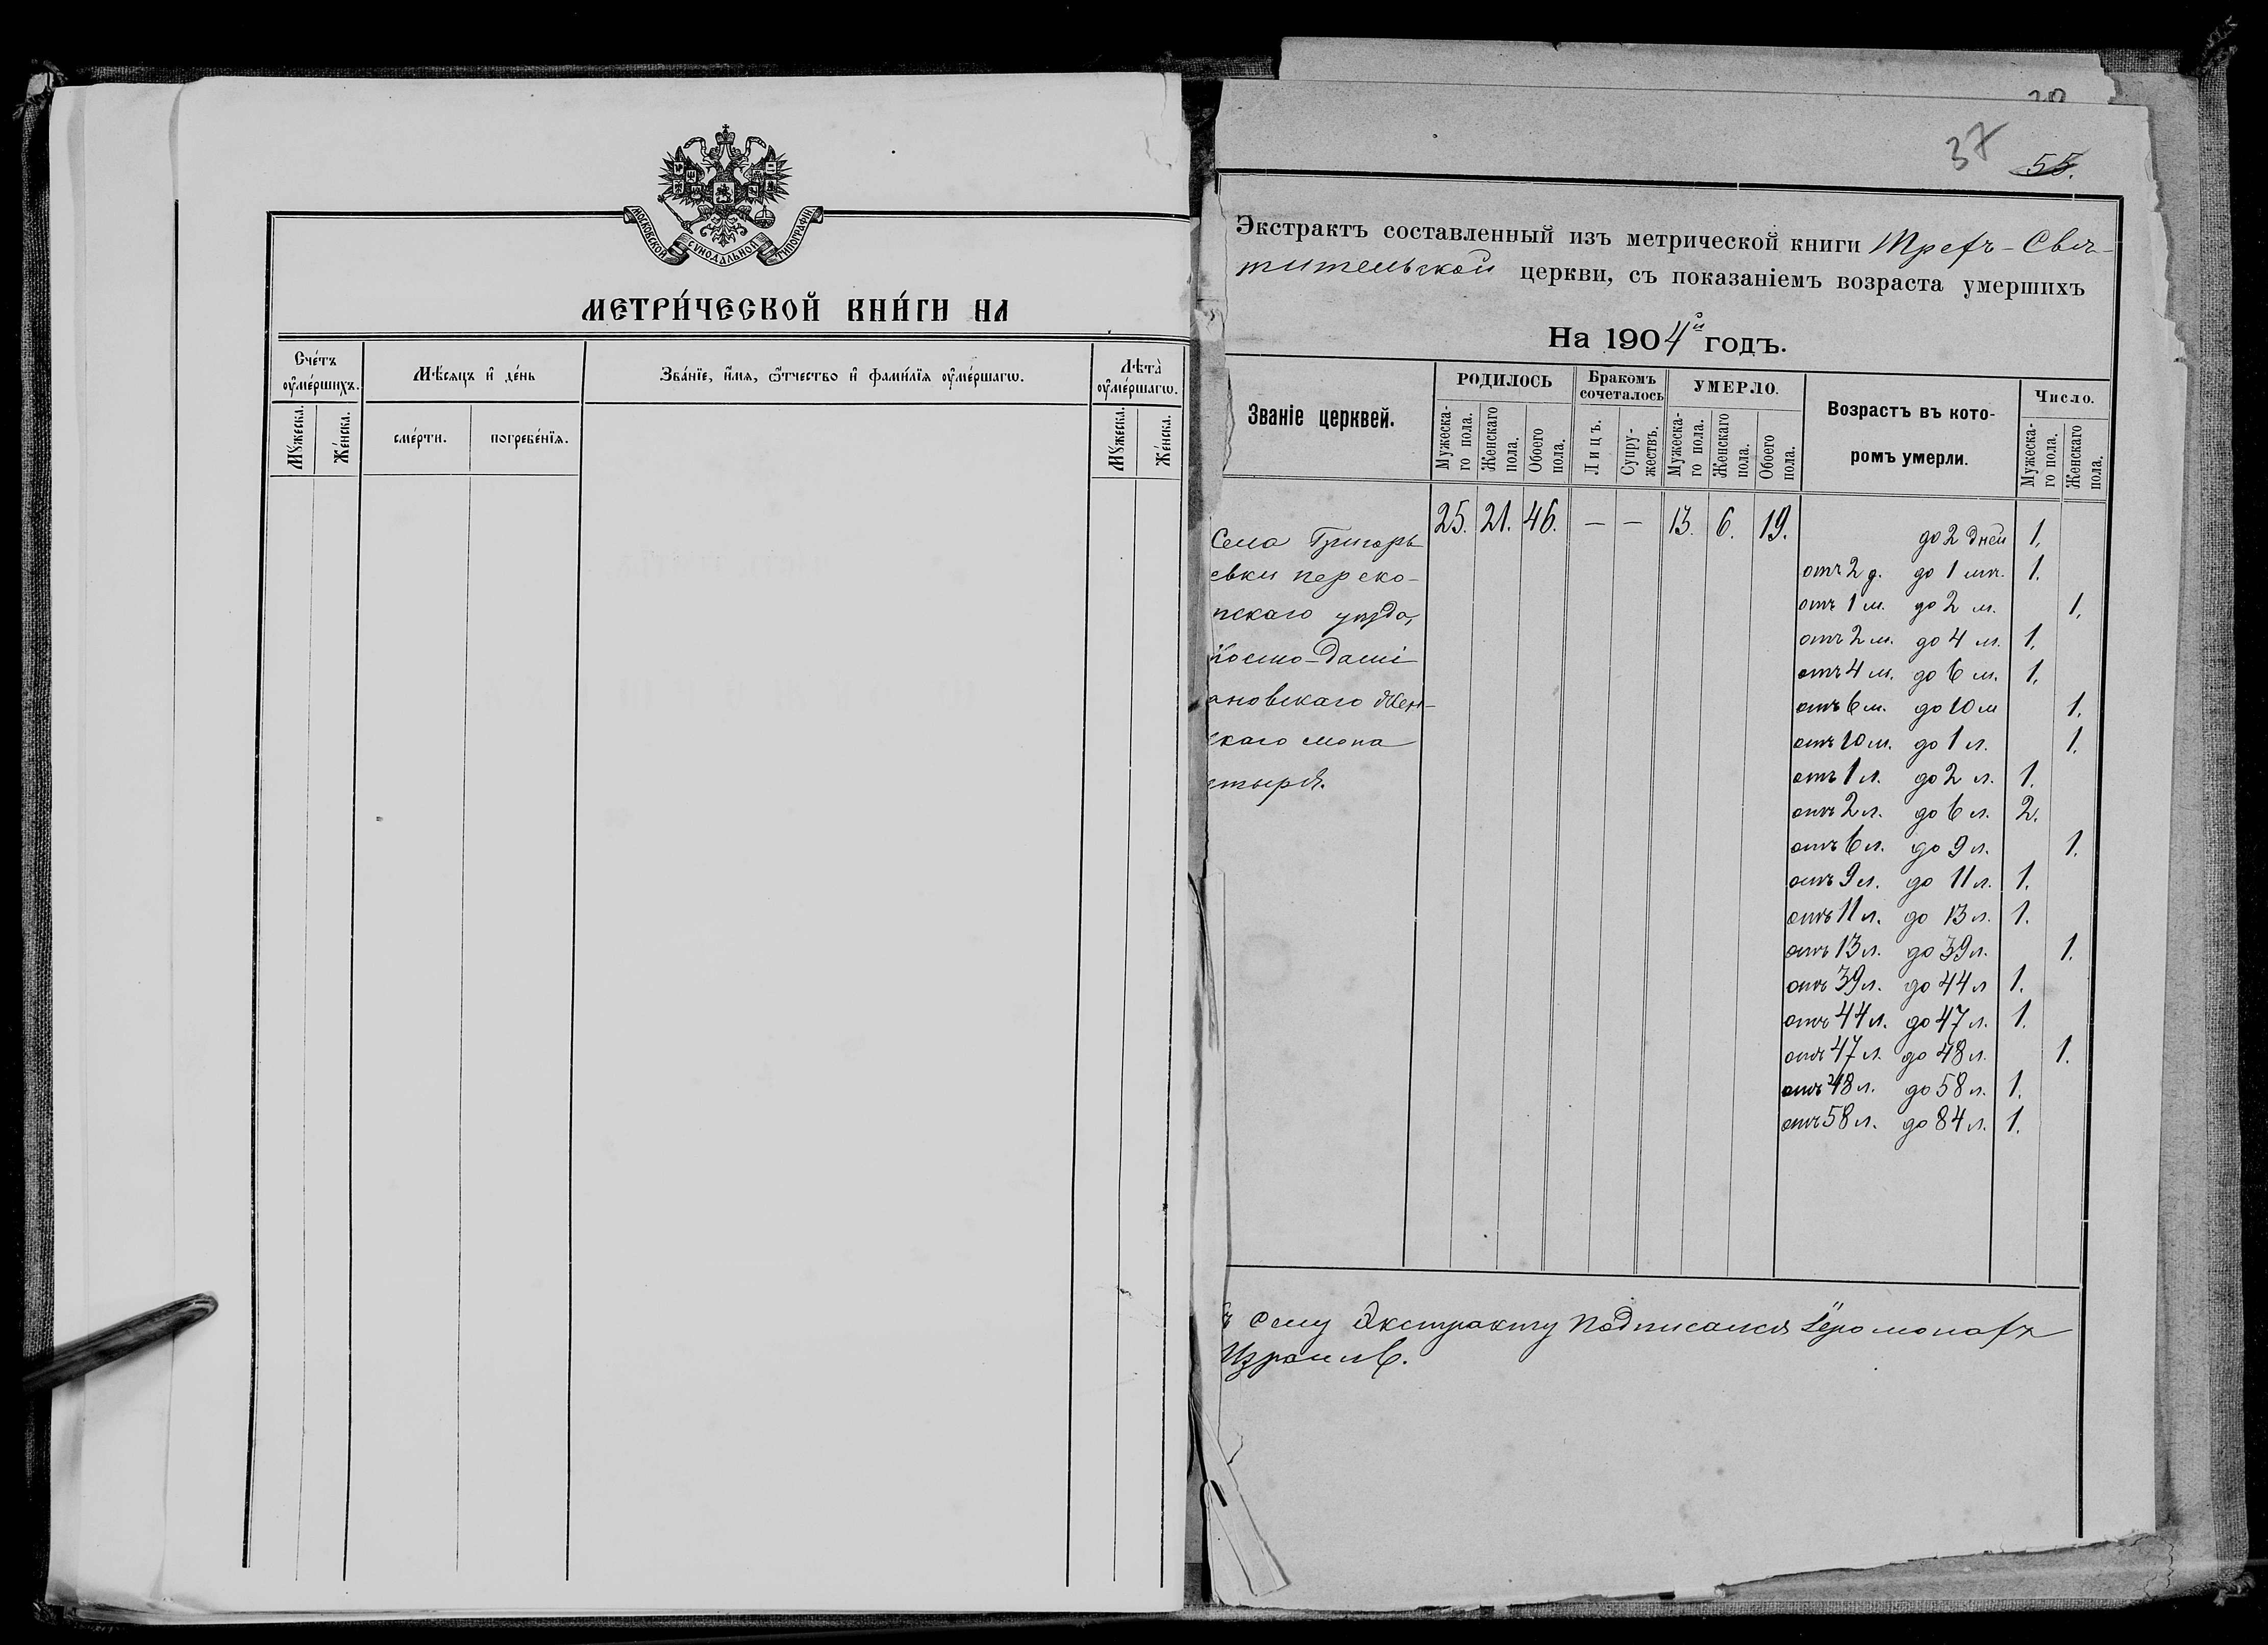 МОСКОВСКОЙ СѴНОДАЛЬНОЙ ТИПОГРАФІИ
МЕТРИ́ЧЕСКОЙ КНИ́ГИ НА
Сче́тъ оу҆ме́ршихъ.
Мꙋ́жеска.
Же́нска.
Мѣ́сяцъ и҆ де́нь
сме́рти.
погребе́нїя.
Зва́нїе, и҆́мя, ѻ҆́тчество и҆ фами́лїя оу҆ме́ршагѡ.
Лѣта̀ оу҆ме́ршагѡ.
Мꙋ́жеска.
Же́нска.
37
55.
Экстрактъ составленный изъ метрической книги Трехъ-Свя-
тительской церкви, съ показаніемъ возраста умершихъ
На 1904й годъ.
Званіе церквей.
РОДИЛОСЬ
Мужеска-
го пола.
Женскаго
пола.
Обоего
пола.
Бракомъ
сочеталось
Лицъ.
Супру-
жествъ.
УМЕРЛО.
Мужеска-
го пола.
Женскаго
пола.
Обоего
пола.
Возрастъ въ кото-
ромъ умерли.
Число.
Мужеска-
го пола.
Женскаго
пола.
25. 21. 46. — — 13. 6. 19.
Села Григорь
евки переко-
пскаго уѣзда,
Космо-Дамі
ановскаго Жен-
скаго мона
стыря.
до 2 дней 1.
отъ 2 д. до 1 мѣ. 1.
отъ 1 м. до 2 м. 1.
отъ 2 м. до 4 м. 1.
отъ 4 м. до 6 м. 1.
отъ 6 м. до 10 м 1.
отъ 10 м. до 1 л. 1.
отъ 1 л. до 2 л. 1.
отъ 2 л. до 6 л. 2.
отъ 6 л. до 9 л. 1.
отъ 9 л. до 11 л. 1.
отъ 11 л. до 13 л. 1.
отъ 13 л. до 39 л. 1.
отъ 39 л. до 44 л 1.
отъ 44 л. до 47 л. 1.
отъ 47 л. до 48 л. 1.
отъ 48 л. до 58 л. 1.
отъ 58 л. до 84 л. 1.
ъ Сему Экстракту Подписался Іеромонахъ
Израиль.